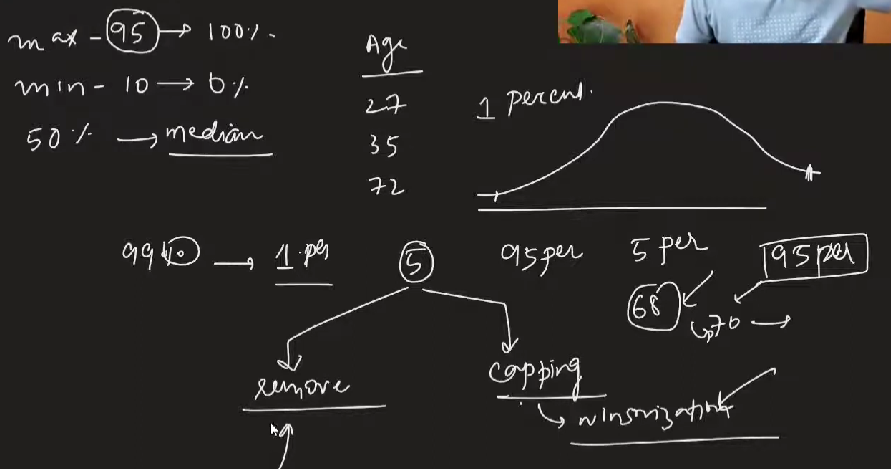 max - 95 → 100%.
min - 10 → 0%
50% → median
Age
27
35
72
1 percent.
→ 1 per
5
95 per
5 per
95 per
68
70 →
remove
capping
winsorization